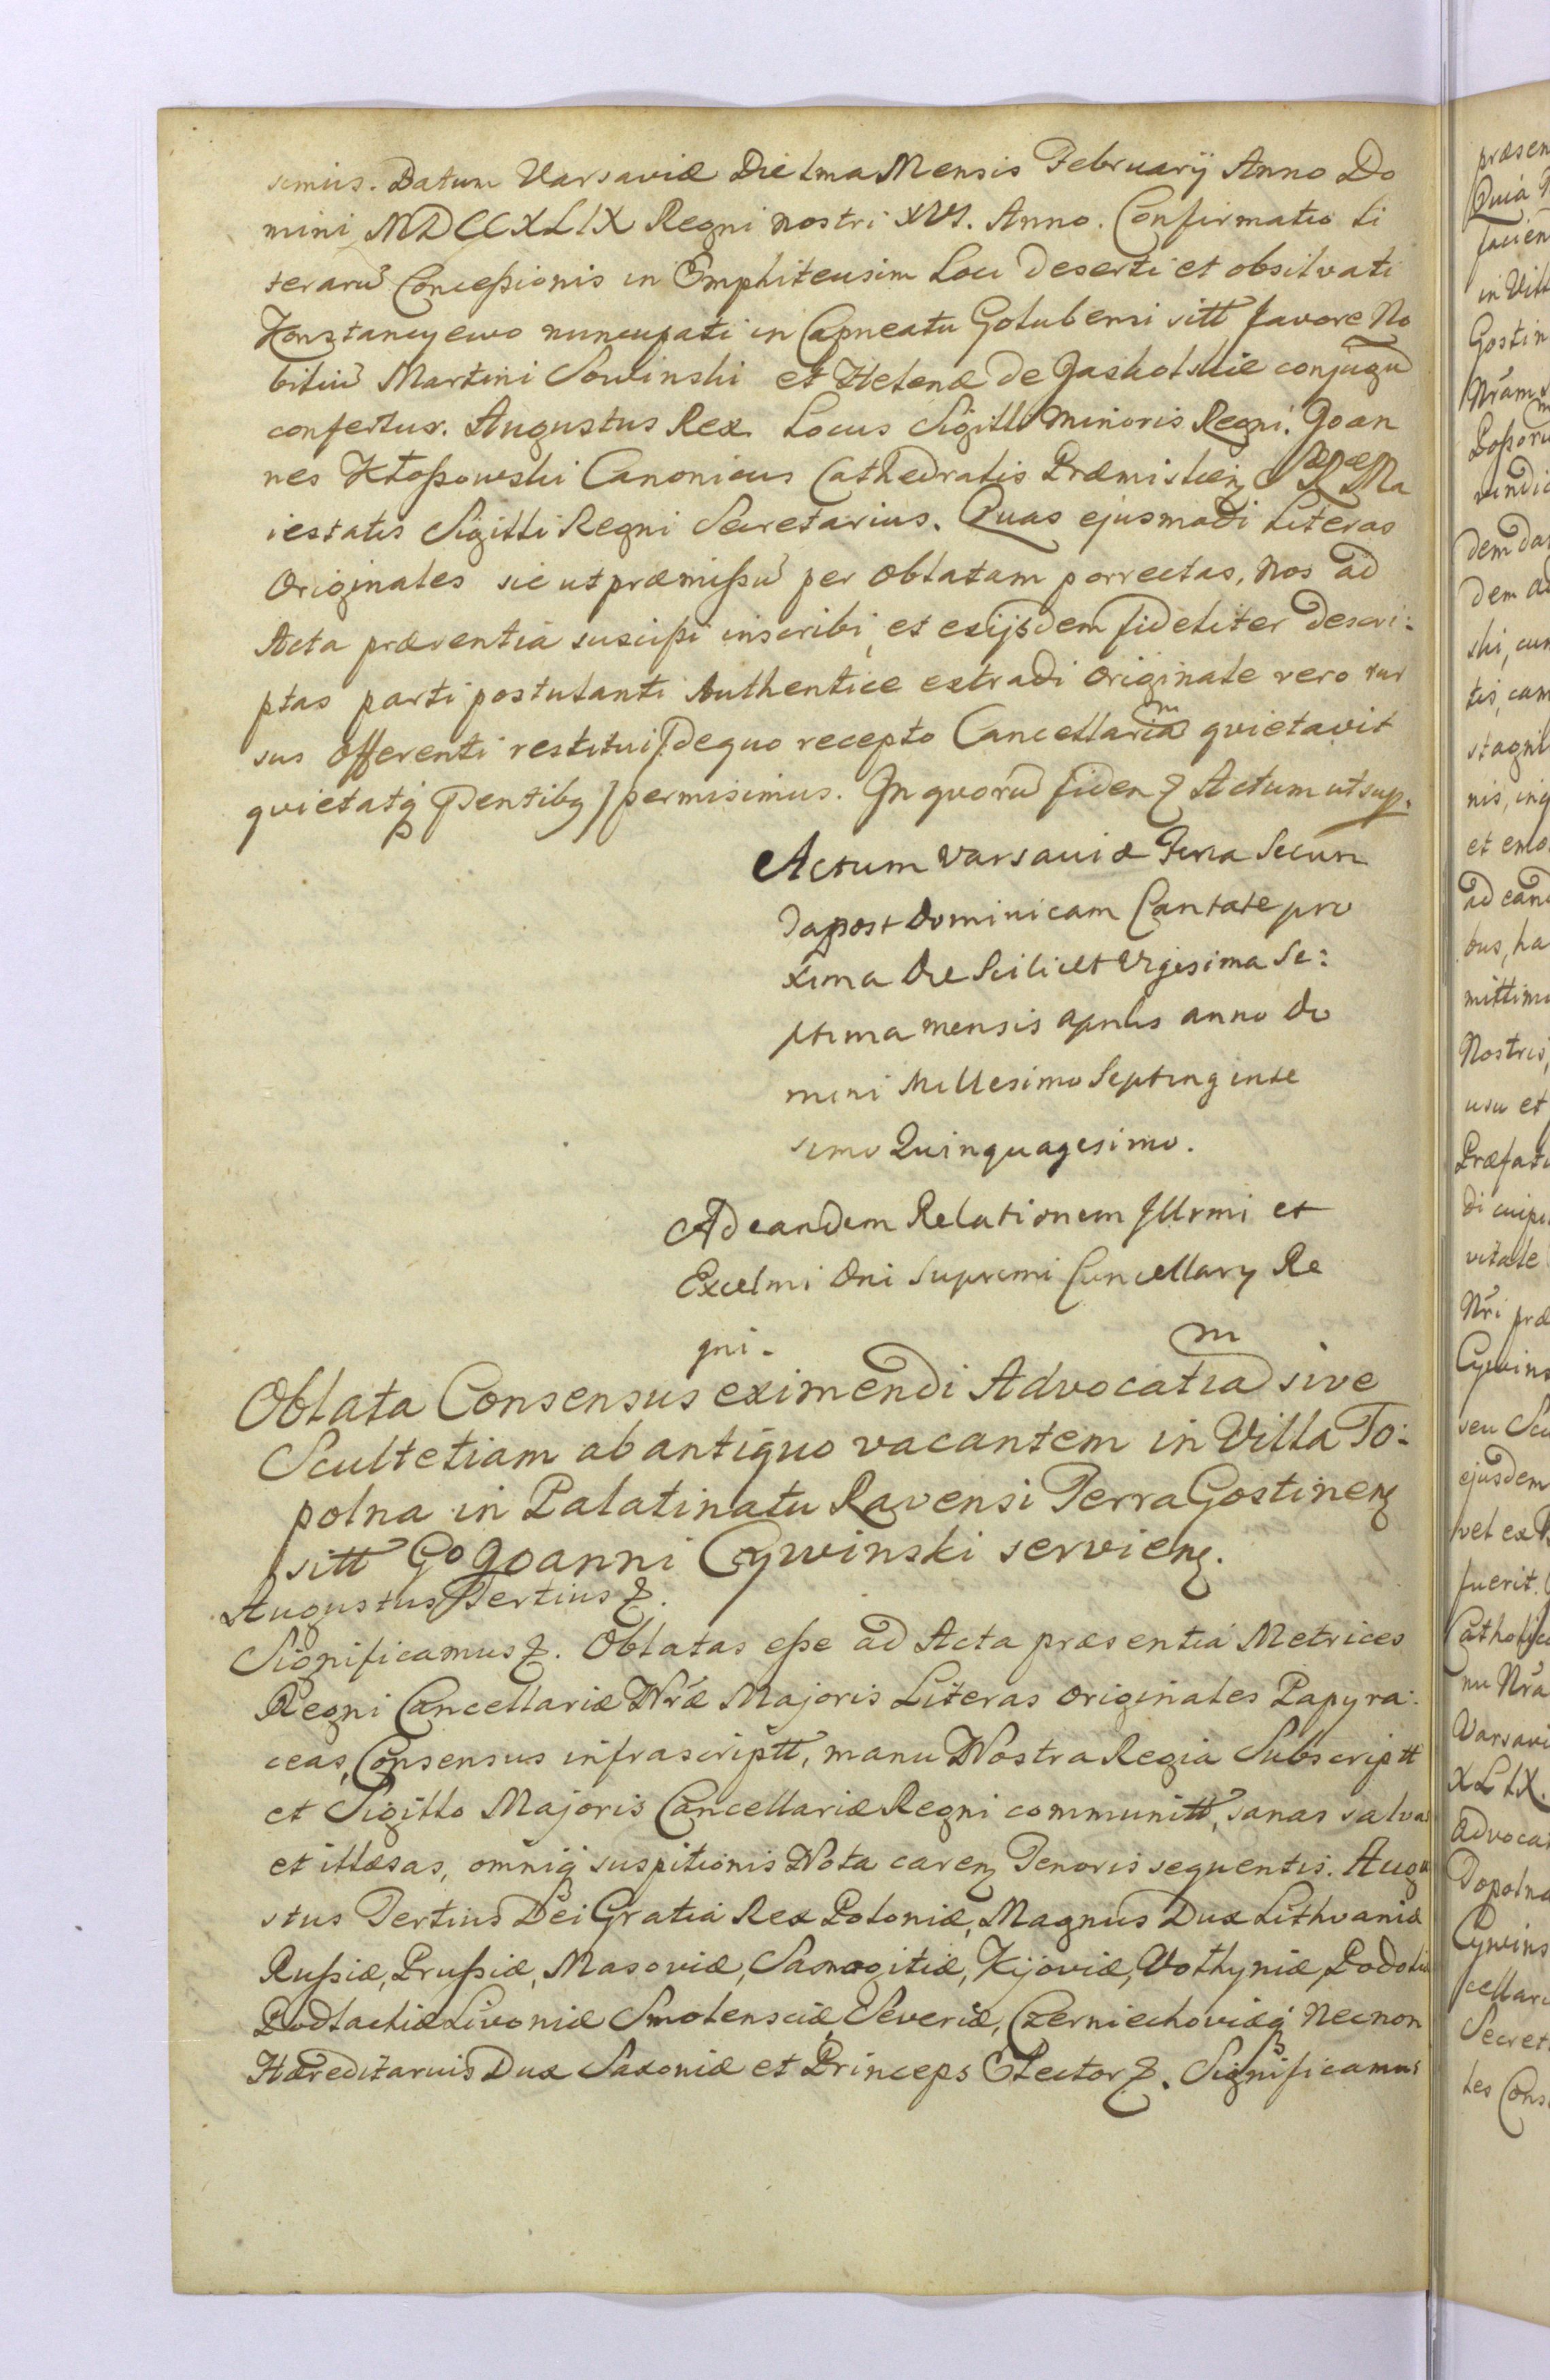 simus. Datum Varsaviæ Die 1ma Mensis Februarÿ Anno Do
mini MDCCXLIX Regni nostri XVI. Anno. Confirmatio Li
teraru̅ Conceßionis in Emphiteusim Loci deserti et obsilvati
Konstancyewo nuncupati in Capneatu Golubensi sitt favore No
biliu̅ Martini Sowinski et Helenæ de Jaskolskie conjugu̅
confertur. Augustus Rex. Locus Sigilli Minoris Regni. Joan
nes Kłoßowski Canonicus Cathedralis Præmislien S Ræ Ma
iestatis Sigilli Regni Secretarius. Quas ejusmodi Literas
Originales sic ut præmißu̅ per oblatam porrectas, Nos ad
Acta præsentia suscipi inscribi, et exijsdem fideliter descri-
ptas parti postulanti Authentice extradi Originale vero rur
sus Offerenti restitui /: de quo recepto Cancellariam quietavit
quietatq̃ p̱sentibq / permisimus. In quoru̅ fidem & Actum ut sup.
Actum Varsaviæ Feria Secun
da post Dominicam Cantate pro
xima Die Scilicet Vigesima Se:
ptima mensis Aprilis anno Do
mini Millesimo Septingente
simo Quinquagesimo.
Ad eandem Relationem Illrmi et
Excelmi Dni Supremi Cancellary Re
gni.
Oblata Consensus eximendi Advocatiam sive
Scultetiam ab antiquo vacantem in Villa To:
polna in Palatinatu Ravensi Terra Gostinen
sitt Go Joanni Cywinski servien.
Augustus Tertius &.
Significamus &. Oblatas eße ad Acta præsentia Metrices
Regni Cancellariæ Nr̃æ Majoris Literas Originales Papyra:
ceas, Consensus infrascriptt, manu Nostra Regia Subscriptt
et Sigillo Majoris Cancellariæ Regni communitt, sanas salvas
et illæsas, omniq̃ suspitionis Nota caren Tenoris sequentis. Augu
stus Tertius Dei Gratia Rex Poloniæ, Magnus Dux Lithvaniæ
Rußiæ, Prußiæ, Masoviæ, Samogitiæ, Kijoviæ, Volhyniæ, Podoliæ
Podlachiæ Livoniæ Smolensciæ, Severiæ, Czerniechoviæq̃ Necnon
Hæreditarius Dux Saxoniæ et Princeps Elector &. Significamus